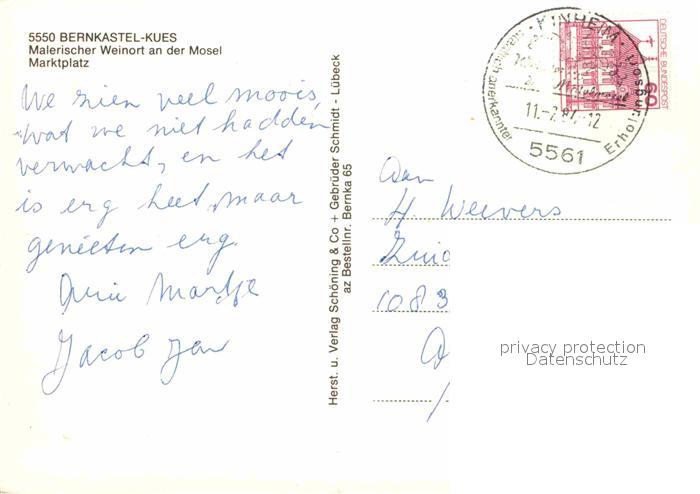 5550 BERNKASTEL-KUES
Malerischer Weinort an der Mosel
Marktplatz
We zien veel moois,
wat we niet hadden
verwacht, en het
is erg heet, maar
genieten erg.
Martje
Jacob Jan
Herst. u. Verlag Schöning & Co + Gebrüder Schmidt - Lübeck
az Bestellnr. Bernka 65
KINHEIM
Staatlich anerkannter
Erholungsort
11.-7.84.-12
5561
DEUTSCHE BUNDESPOST
60
Aan
H. Weevers
Zuid
1083
privacy protection
Datenschutz